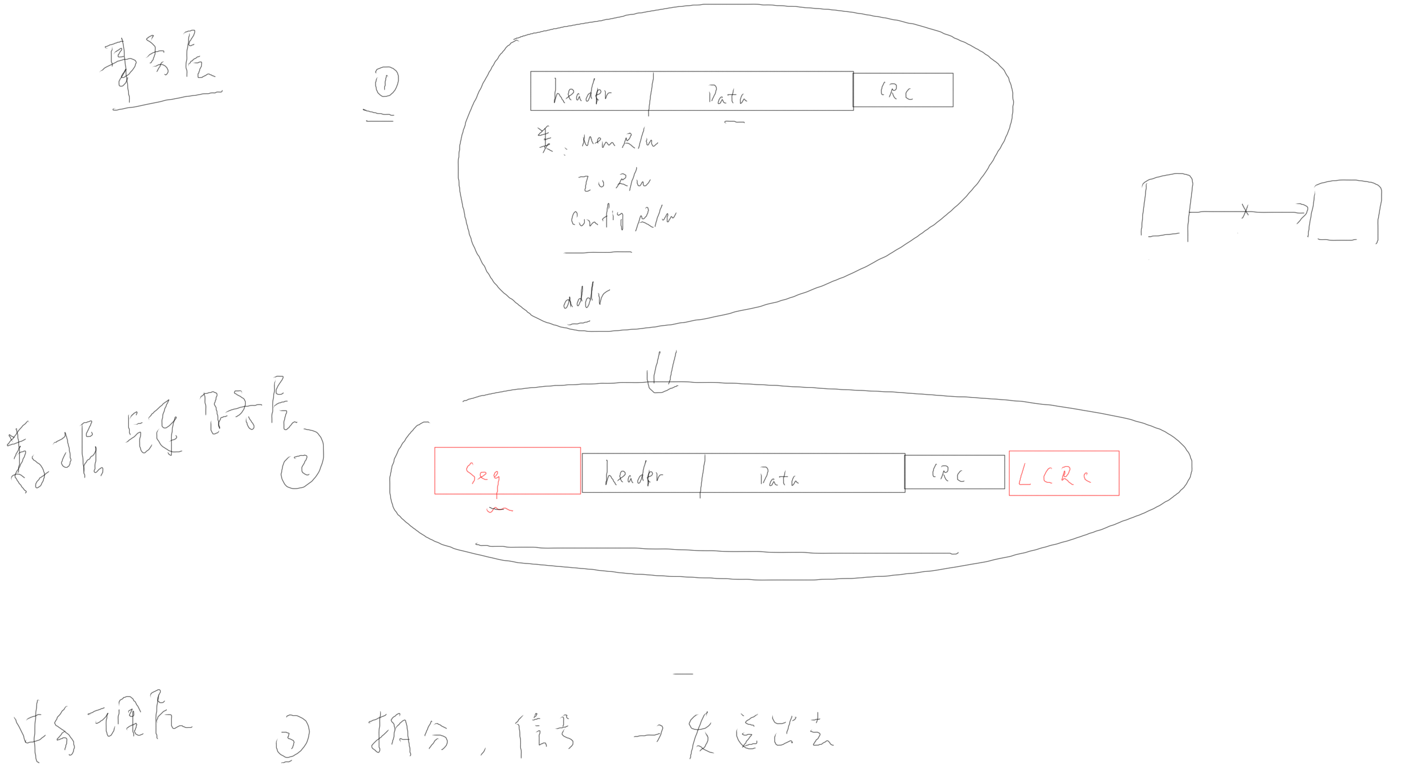 事务层
①
header Data CRC
类: Mem R/W
IO R/W
Config R/W
addr
数据链路层
②
Seq header Data CRC LCRC
物理层
③ 拆分, 信号 → 发送出去